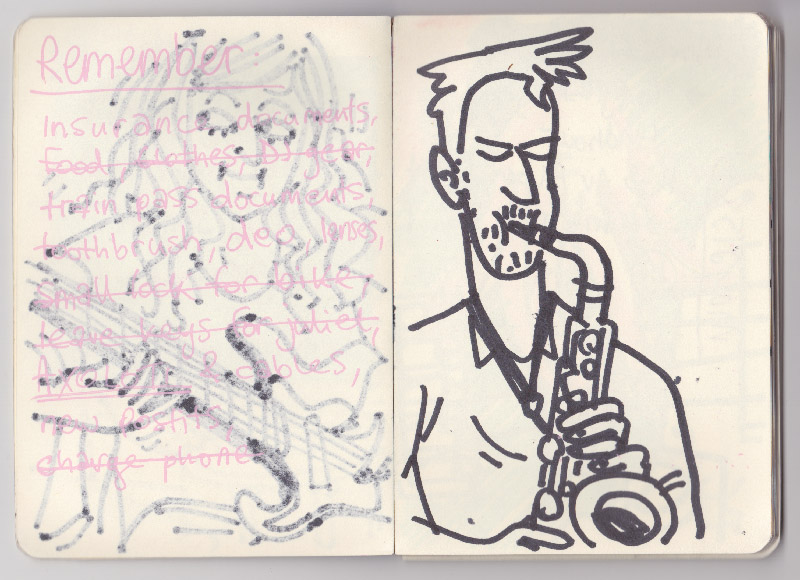 Remember:
Insurance documents,
food, clothes, DJ gear,
train pass documents,
toothbrush, deo, lenses,
small lock for bike,
leave keys for juliet,
& cables,
new postits,
charge phone